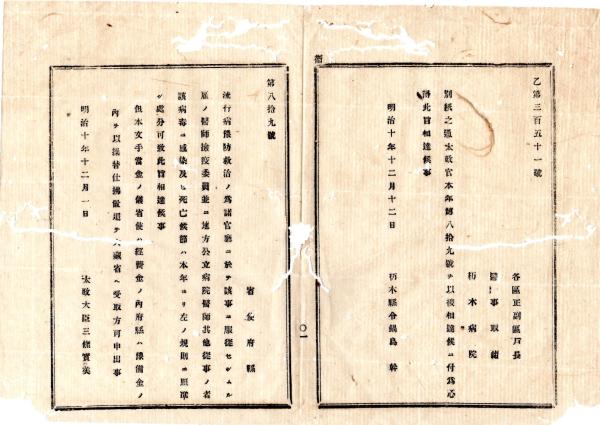 乙第三百五十一號
各區正副區戸長
醫事取締
栃木病院
別紙之通太政官本年第八拾九號ヲ以被相達候ニ付爲心
得此旨相達候事
明治十年十二月十二日
栃木縣令鍋島幹
第八拾九號
省使府縣
流行病豫防救治ノ爲諸官廳ニ於テ該事ニ服從セシムル
雇ノ醫師檢疫委員並ニ地方公立病院醫師其他從事ノ者
該病毒ニ感染及ヒ死亡候節ハ本年ヨリ左ノ規則ニ照準
シ處分可致此旨相達候事
但本文手當金ノ儀省使ハ經費金ノ内府縣ハ豫備金ノ
内ヲ以操替仕拂做追テ大藏省ヘ受取方可申出事
明治十年十二月一日
太政大臣三條實美
〇一